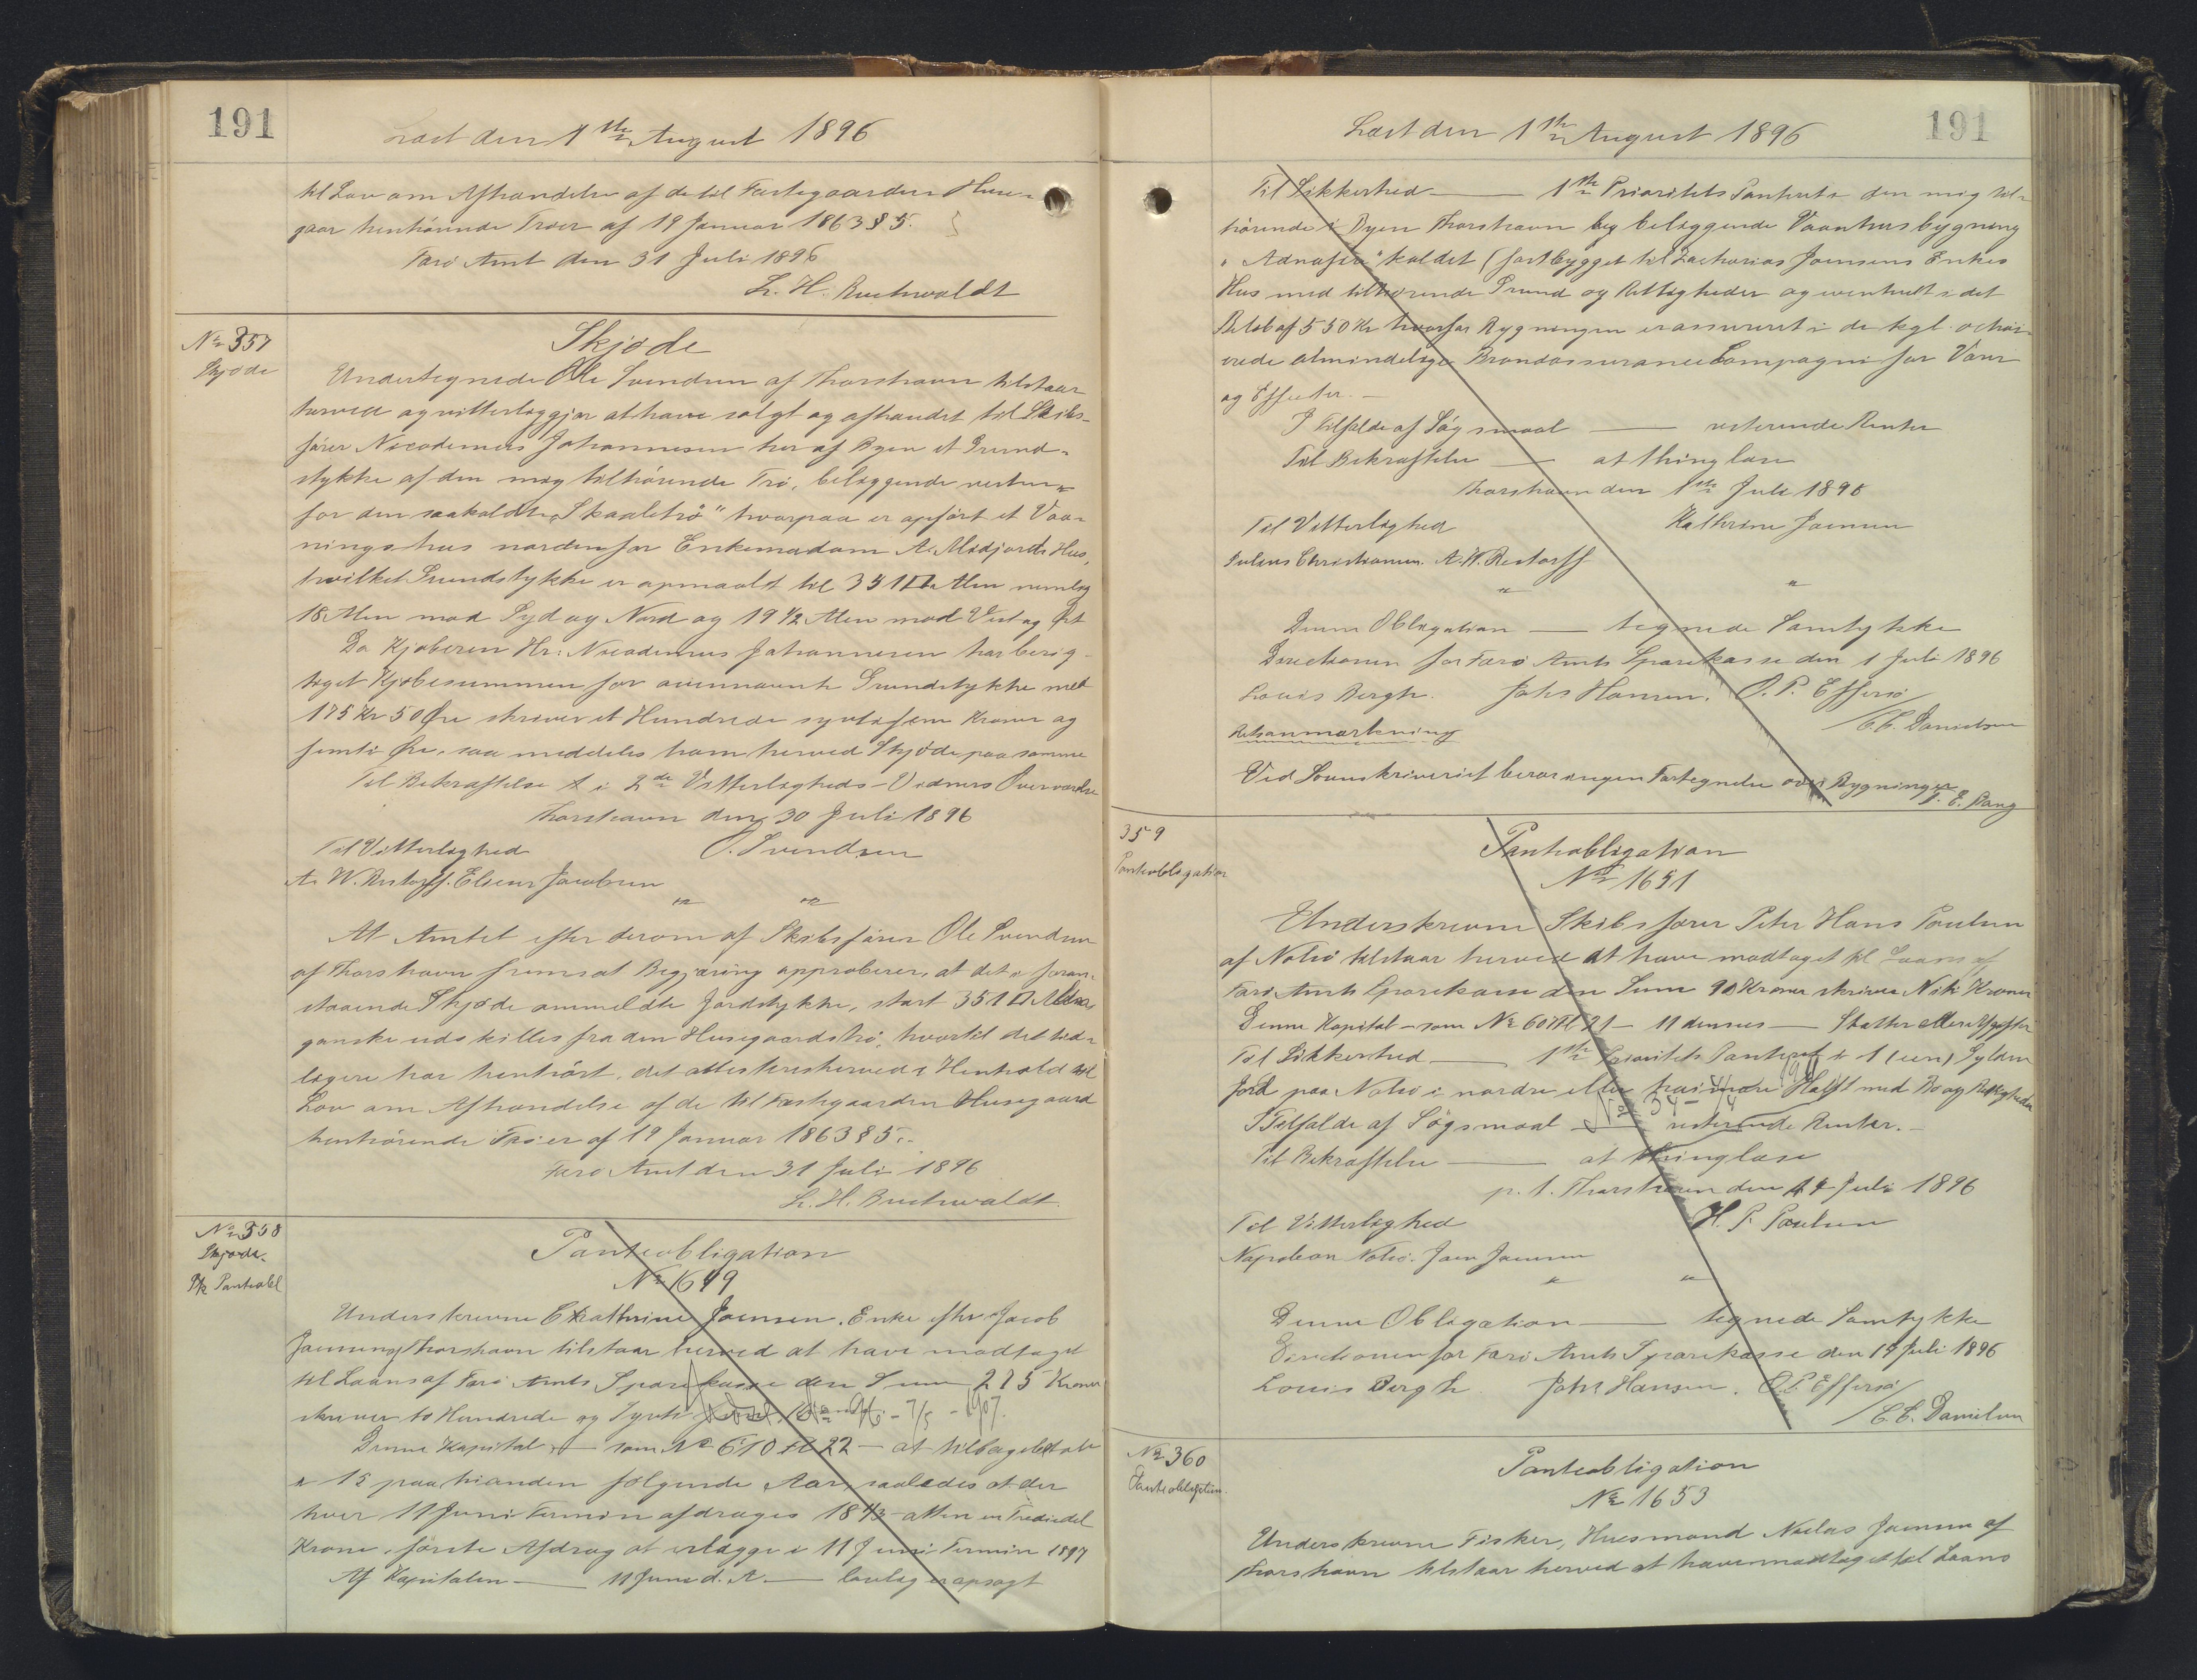 191
Læst den 1ste August 1896
til Lov om Afhændelse af de til Fæstegaarden Huse-
gaar henhørende Trøer af 19 Januar 1863 § 5.
Færø Amt den 31 Juli 1896
L. H. Buchwaldt
No 357
Skjøde
Skjøde
Undertegnede Ole Svendsen af Thorshavn tilstaar
herved og vitterliggjør at have solgt og afhændet til Skibs-
fører Nicodemus Johannesen her af Byen et Grund-
stykke af den mig tilhørende Trø, beliggende vesten-
for den saakaldte "Skaaletrø" hvorpaa er opført et Vaa-
ningshus nordenfor Enkemadam A. Midjords Hus,
hvilket Grundstykke er opmaalt til 351 □ Alen nemlig
18 Alen mod Syd og Nord og 19 1/2 Alen mod Vest og Øst
Da Kjøberen Hr: Nicodemus Johannesen har berig-
tiget Kjøbesummen for ovennævnte Grundstykke med
175 Kr 50 Øre skriver et Hundrede syvti fem Kroner og
femti Øre, saa meddeles ham herved Skjøde paa samme
Til Bekræftelse t i 2de Vitterligheds-Vidners Overværelse
Thorshavn den 30 Juli 1896
Til Vitterlighed O. Svendsen
A. W. Restorff. Elieser Jacobsen
" "
At Amtet efter derom af Skibsfører Ole Svendsen
af Thorshavn fremsat Begjæring approberer, at det i foran-
staaende Skjøde ommeldte Jordstykke, stort 351 □ Alen
ganske udskilles fra den Husegaardstrø, hvortil det tid-
ligere har henhørt, det attesteres herved i Henhold til
Lov om Afhændelse af de til Fæstegaarden Husegaard
henhørende Trøer af 19 Januar 1863 § 5.
Færø Amt den 31 Juli 1896
L. H. Buchwaldt.
No 358
Skjøde.
Panteobl
Panteobligation
No 1649
Underskrevne Cathrine Joensen, Enke efter Jacob
Joensen af Thorshavn tilstaar herved at have modtaget
til Laans af Færø Amts Sparekasse den Sum 275 Kroner
skriver to Hundrede og Syvti - 7/5 - 1907.
Denne Kapital — som No 610 Fol 22 — at tilbagebetale
i 15 paa hianden følgende Aar, saaledes at der
hver 11 Juni Termin afdrages 18 1/3 atten en Trediedel
Krone, første Afdrag at erlægge i 11 Juni Termin 1897
Af Kapitalen — 11 Juni d. A. — lovlig er opsagt
Læst den 1ste August 1896
191
Til Sikkerhed — 1ste Prioritets Panteret i den mig til-
hørende i Byen Thorshavn beliggende Vaanhusbygning
kaldet (fastbygget til Zacharias Joensens Enkes
Hus med tilhørende Grund og Rettigheder og eventuelt i det
Beløb af 550 Kr hvorfor Bygningen er assureret i de kgl. octroi-
erede almindelige Brandassurance Compagni for Varer
og Effecter. —
I Tilfælde af Søgsmaal — resterende Renter
Til Bekræftelse — at thinglæse
Thorshavn den 1ste Juli 1896
Til Vitterlighed Kathrine Joensen
Julius Christiansen. A. W. Restorff
" "
Denne Obligation — tegnede Samtykke
Directionen for Færø Amts Sparekasse den 1 Juli 1896
Louis Bergh. Johs Hansen. O. P. Effersø
/ C. C. Danielsen
Retsanmærkning
Ved Sorenskriveriet beror ingen Fortegnelse over Bygninger
P. E. Bang
359
Panteobligation
Panteobligation
No 1651
Underskrevne Skibsfører Peter Hans Poulsen
af Nolsø tilstaar herved at have modtaget til Laans af
Færø Amts Sparekasse den Sum 90 Kroner skriver Niti Kroner
Denne Kapital — som No 607 Fol 21 — 11 dennes — Skatter eller Afgifter
Til Sikkerhed — 1ste Prioritets Panteret i 1 (een) Gylden
Jord paa Nolsø i nordre eller Halft med Bo og Rettigheder
I Tilfælde af Søgsmaal — resterende Renter. —
Til Bekræftelse — at thinglæse
p. t. Thorshavn den 14 Juli 1896
Til Vitterlighed H. P. Poulsen
Napoleon Nolsø. Joen Joensen
" "
Denne Obligation — tegnede Samtykke
Directionen for Færø Amts Sparekasse den 14 Juli 1896
Louis Bergh Johs Hansen. O. P. Effersø
/ C. C. Danielsen
No 360
Panteobligation.
Panteobligation
No 1653
Underskrevne Fisker, Huusmand Niclas Joensen af
Thorshavn tilstaar herved at have modtaget til Laans